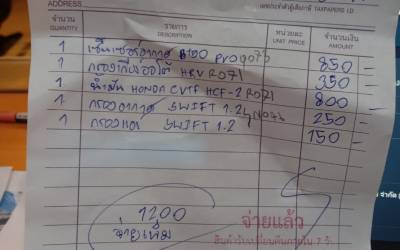 ADDRESS
เลขประจำตัวผู้เสียภาษี TAXPAYERS I.D
จำนวน รายการ หน่วยละ จำนวนเงิน
QUANTITY DESCRIPTION UNIT PRICE AMOUNT
1 เซ็นเซอร์อากาศ Pro 850 –
1 กรองเกียร์ออโต้ HRV R071 350 –
1 น้ำมัน HONDA CVTF HCF-2 R071 800 –
1 กรองอากาศ SWIFT 1.2 250 –
1 กรองแอร์ SWIFT 1.2 150 –
1200
จ่ายเพิ่ม
จ่ายแล้ว
สินค้ารับเปลี่ยนคืนภายใน 7 วัน